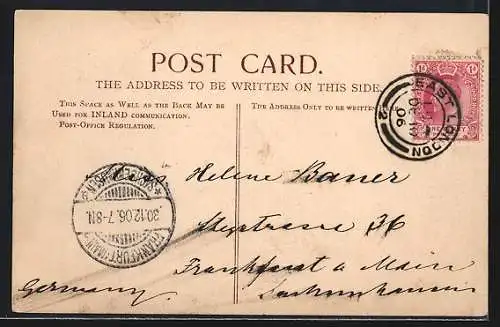 POST CARD.
THE ADDRESS TO BE WRITTEN ON THIS SIDE.
THIS SPACE AS WELL AS THE BACK MAY BE
USED FOR INLAND COMMUNICATION.
POST-OFFICE REGULATION.
THE ADDRESS ONLY TO BE WRITTEN
EAST LONDON
06
2
Miss Helene Bauer
36
Frankfurt a Main
Sachsenhausen
Germany
20.12.06. 7-8N.
FRANKFURT (MAIN)